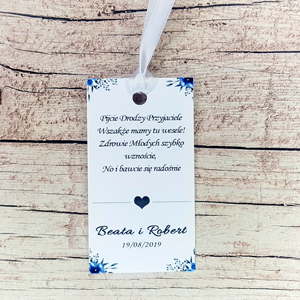 Pijcie Drodzy Przyjaciele
Wszakże mamy tu wesele!
Zdrowie Młodych szybko
wznoście,
No i bawcie się radośnie
Beata i Robert
19/08/2019